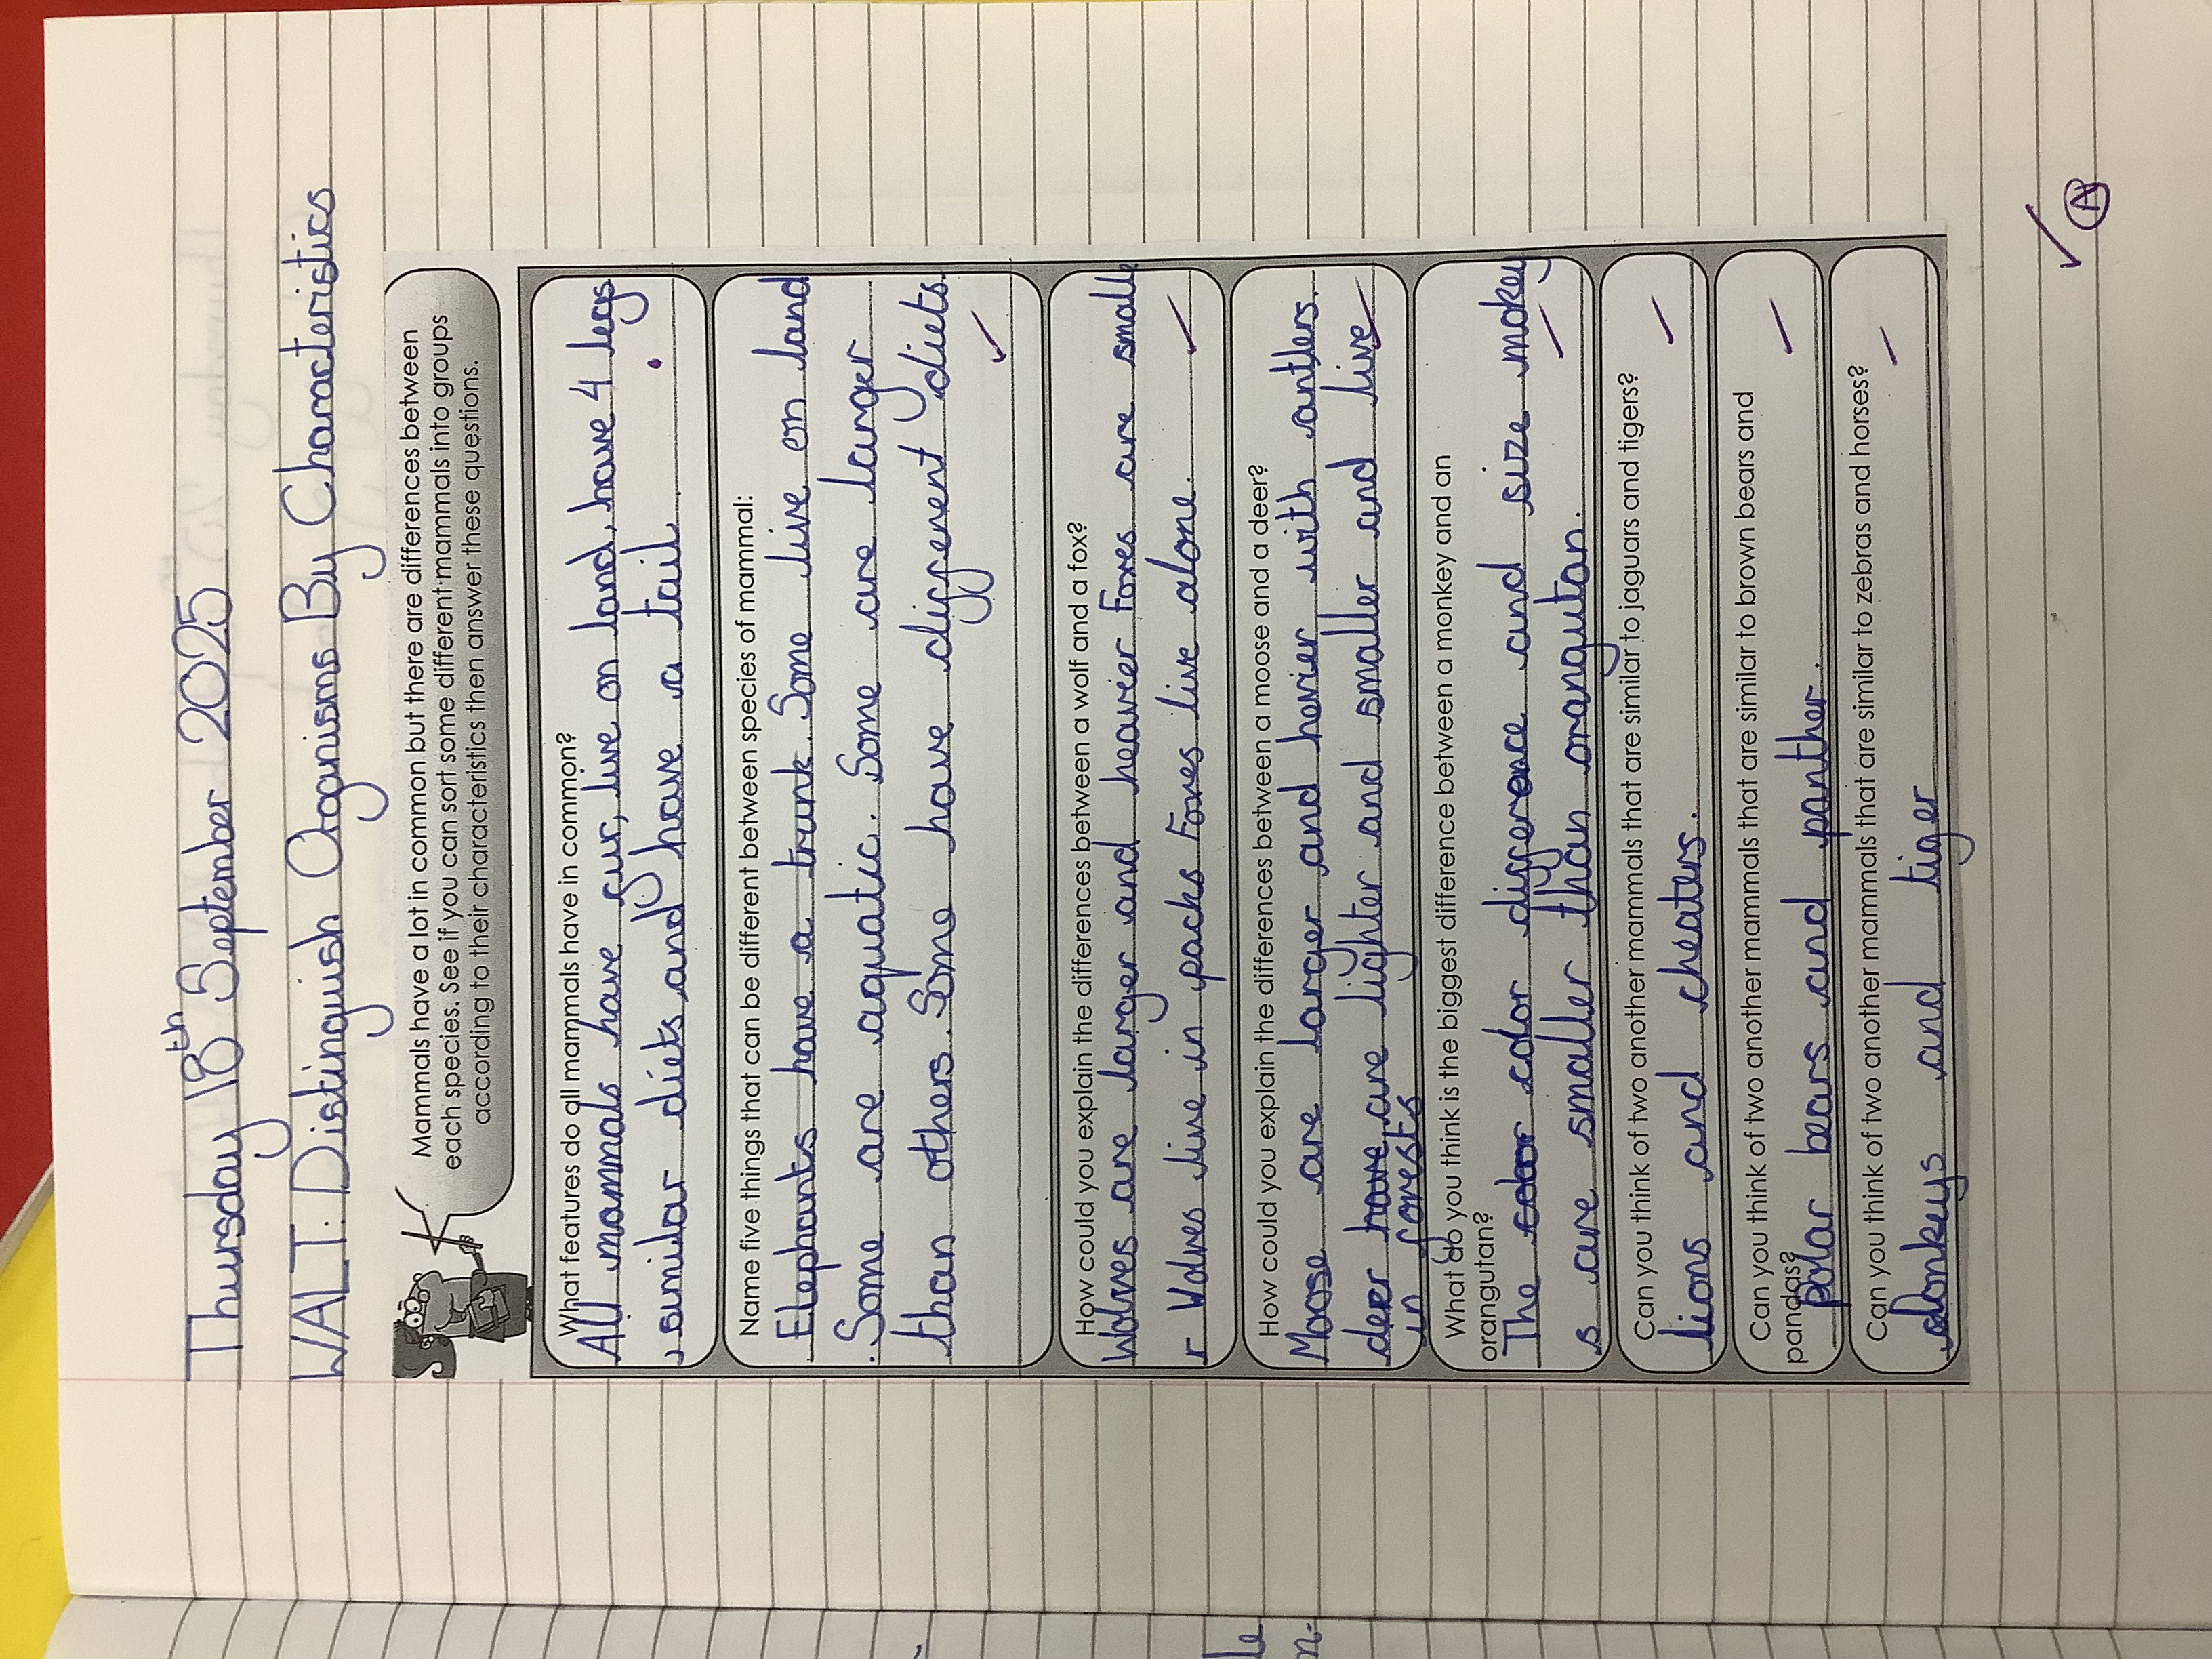 Thursday 18th September 2025
WALT: Distinguish Organisms By Characteristics
Mammals have a lot in common but there are differences between
each species. See if you can sort some different mammals into groups
according to their characteristics then answer these questions.
What features do all mammals have in common?
All mammals have fur, live on land, have 4 legs
, similar diets and have a tail.
Name five things that can be different between species of mammal:
Elephants have a trunk. Some live on land
. Some are aquatic. Some are larger
than others. Some have different diets.
How could you explain the differences between a wolf and a fox?
Wolves are larger and heavier Foxes are smalle
r Wolves live in packs Foxes live alone.
How could you explain the differences between a moose and a deer?
Moose are larger and hevier with antlers.
deer have are lighter and smaller and live
in forests
What do you think is the biggest difference between a monkey and an
orangutan?
The color diffrence and size mokey
s are smaller than orangutan.
Can you think of two another mammals that are similar to jaguars and tigers?
lions and cheaters.
Can you think of two another mammals that are similar to brown bears and
pandas?
polar bears and panther.
Can you think of two another mammals that are similar to zebras and horses?
donkeys and tiger
A